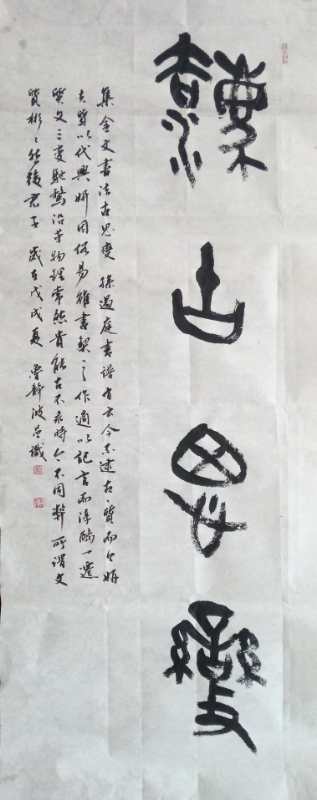 灋古思變
集金文書法古思變 孫過庭書譜有云今不逮古々質而今妍
夫質以代興妍因俗易雖書契之作適以記言而淳醨一遷
質文三變馳騖沿革物理常然貴能古不乖時今不同弊所謂文
質彬々然後君子 歲在戊戌夏 靜波 識